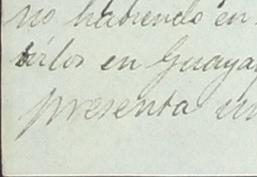 no habiendo en
tirlos en Guaya
presenta un